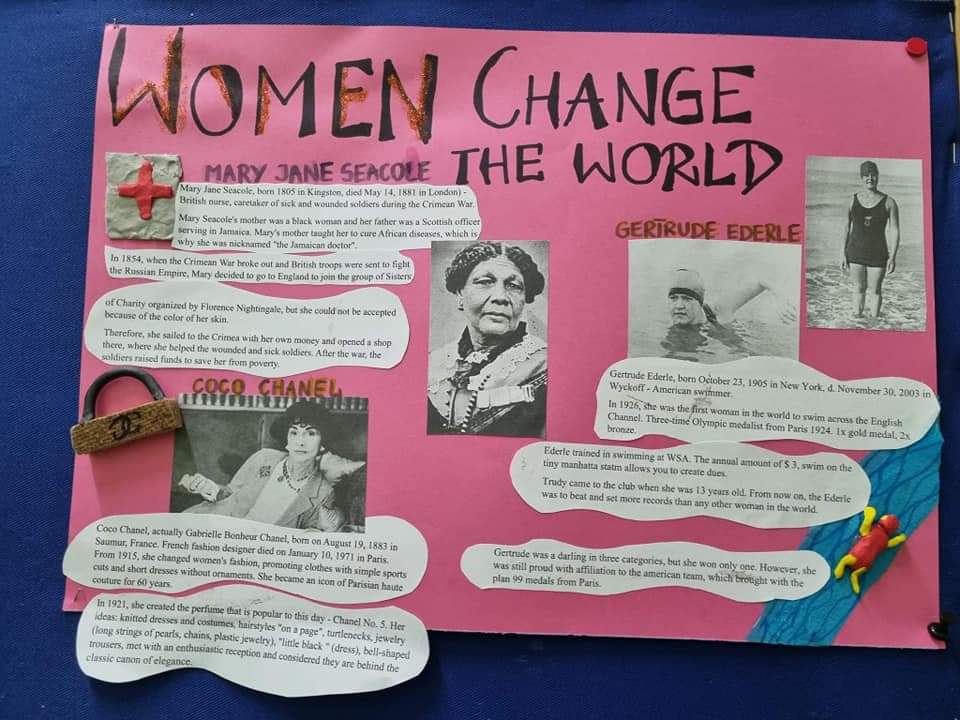 WOMEN CHANGE
THE WORLD
MARY JANE SEACOLE
Mary Jane Seacole, born 1805 in Kingston, died May 14, 1881 in London) -
British nurse, caretaker of sick and wounded soldiers during the Crimean War.
Mary Seacole's mother was a black woman and her father was a Scottish officer
serving in Jamaica. Mary's mother taught her to cure African diseases, which is
why she was nicknamed "the Jamaican doctor".
In 1854, when the Crimean War broke out and British troops were sent to fight
the Russian Empire, Mary decided to go to England to join the group of Sisters
of Charity organized by Florence Nightingale, but she could not be accepted
because of the color of her skin.
Therefore, she sailed to the Crimea with her own money and opened a shop
there, where she helped the wounded and sick soldiers. After the war, the
soldiers raised funds to save her from poverty.
COCO CHANEL
Coco Chanel, actually Gabrielle Bonheur Chanel, born on August 19, 1883 in
Saumur, France. French fashion designer died on January 10, 1971 in Paris.
From 1915, she changed women's fashion, promoting clothes with simple sports
cuts and short dresses without ornaments. She became an icon of Parisian haute
couture for 60 years.
In 1921, she created the perfume that is popular to this day - Chanel No. 5. Her
ideas: knitted dresses and costumes, hairstyles "on a page", turtlenecks, jewelry
(long strings of pearls, chains, plastic jewelry), "little black " (dress), bell-shaped
trousers, met with an enthusiastic reception and considered they are behind the
classic canon of elegance.
GERTRUDE EDERLE
Gertrude Ederle, born October 23, 1905 in New York, d. November 30, 2003 in
Wyckoff - American swimmer.
In 1926, she was the first woman in the world to swim across the English
Channel. Three-time Olympic medalist from Paris 1924. 1x gold medal, 2x
bronze.
Ederle trained in swimming at WSA. The annual amount of $ 3, swim on the
tiny manhatta statm allows you to create dues.
Trudy came to the club when she was 13 years old. From now on, the Ederle
was to beat and set more records than any other woman in the world.
Gertrude was a darling in three categories, but she won only one. However, she
was still proud with affiliation to the american team, which brought with the
plan 99 medals from Paris.